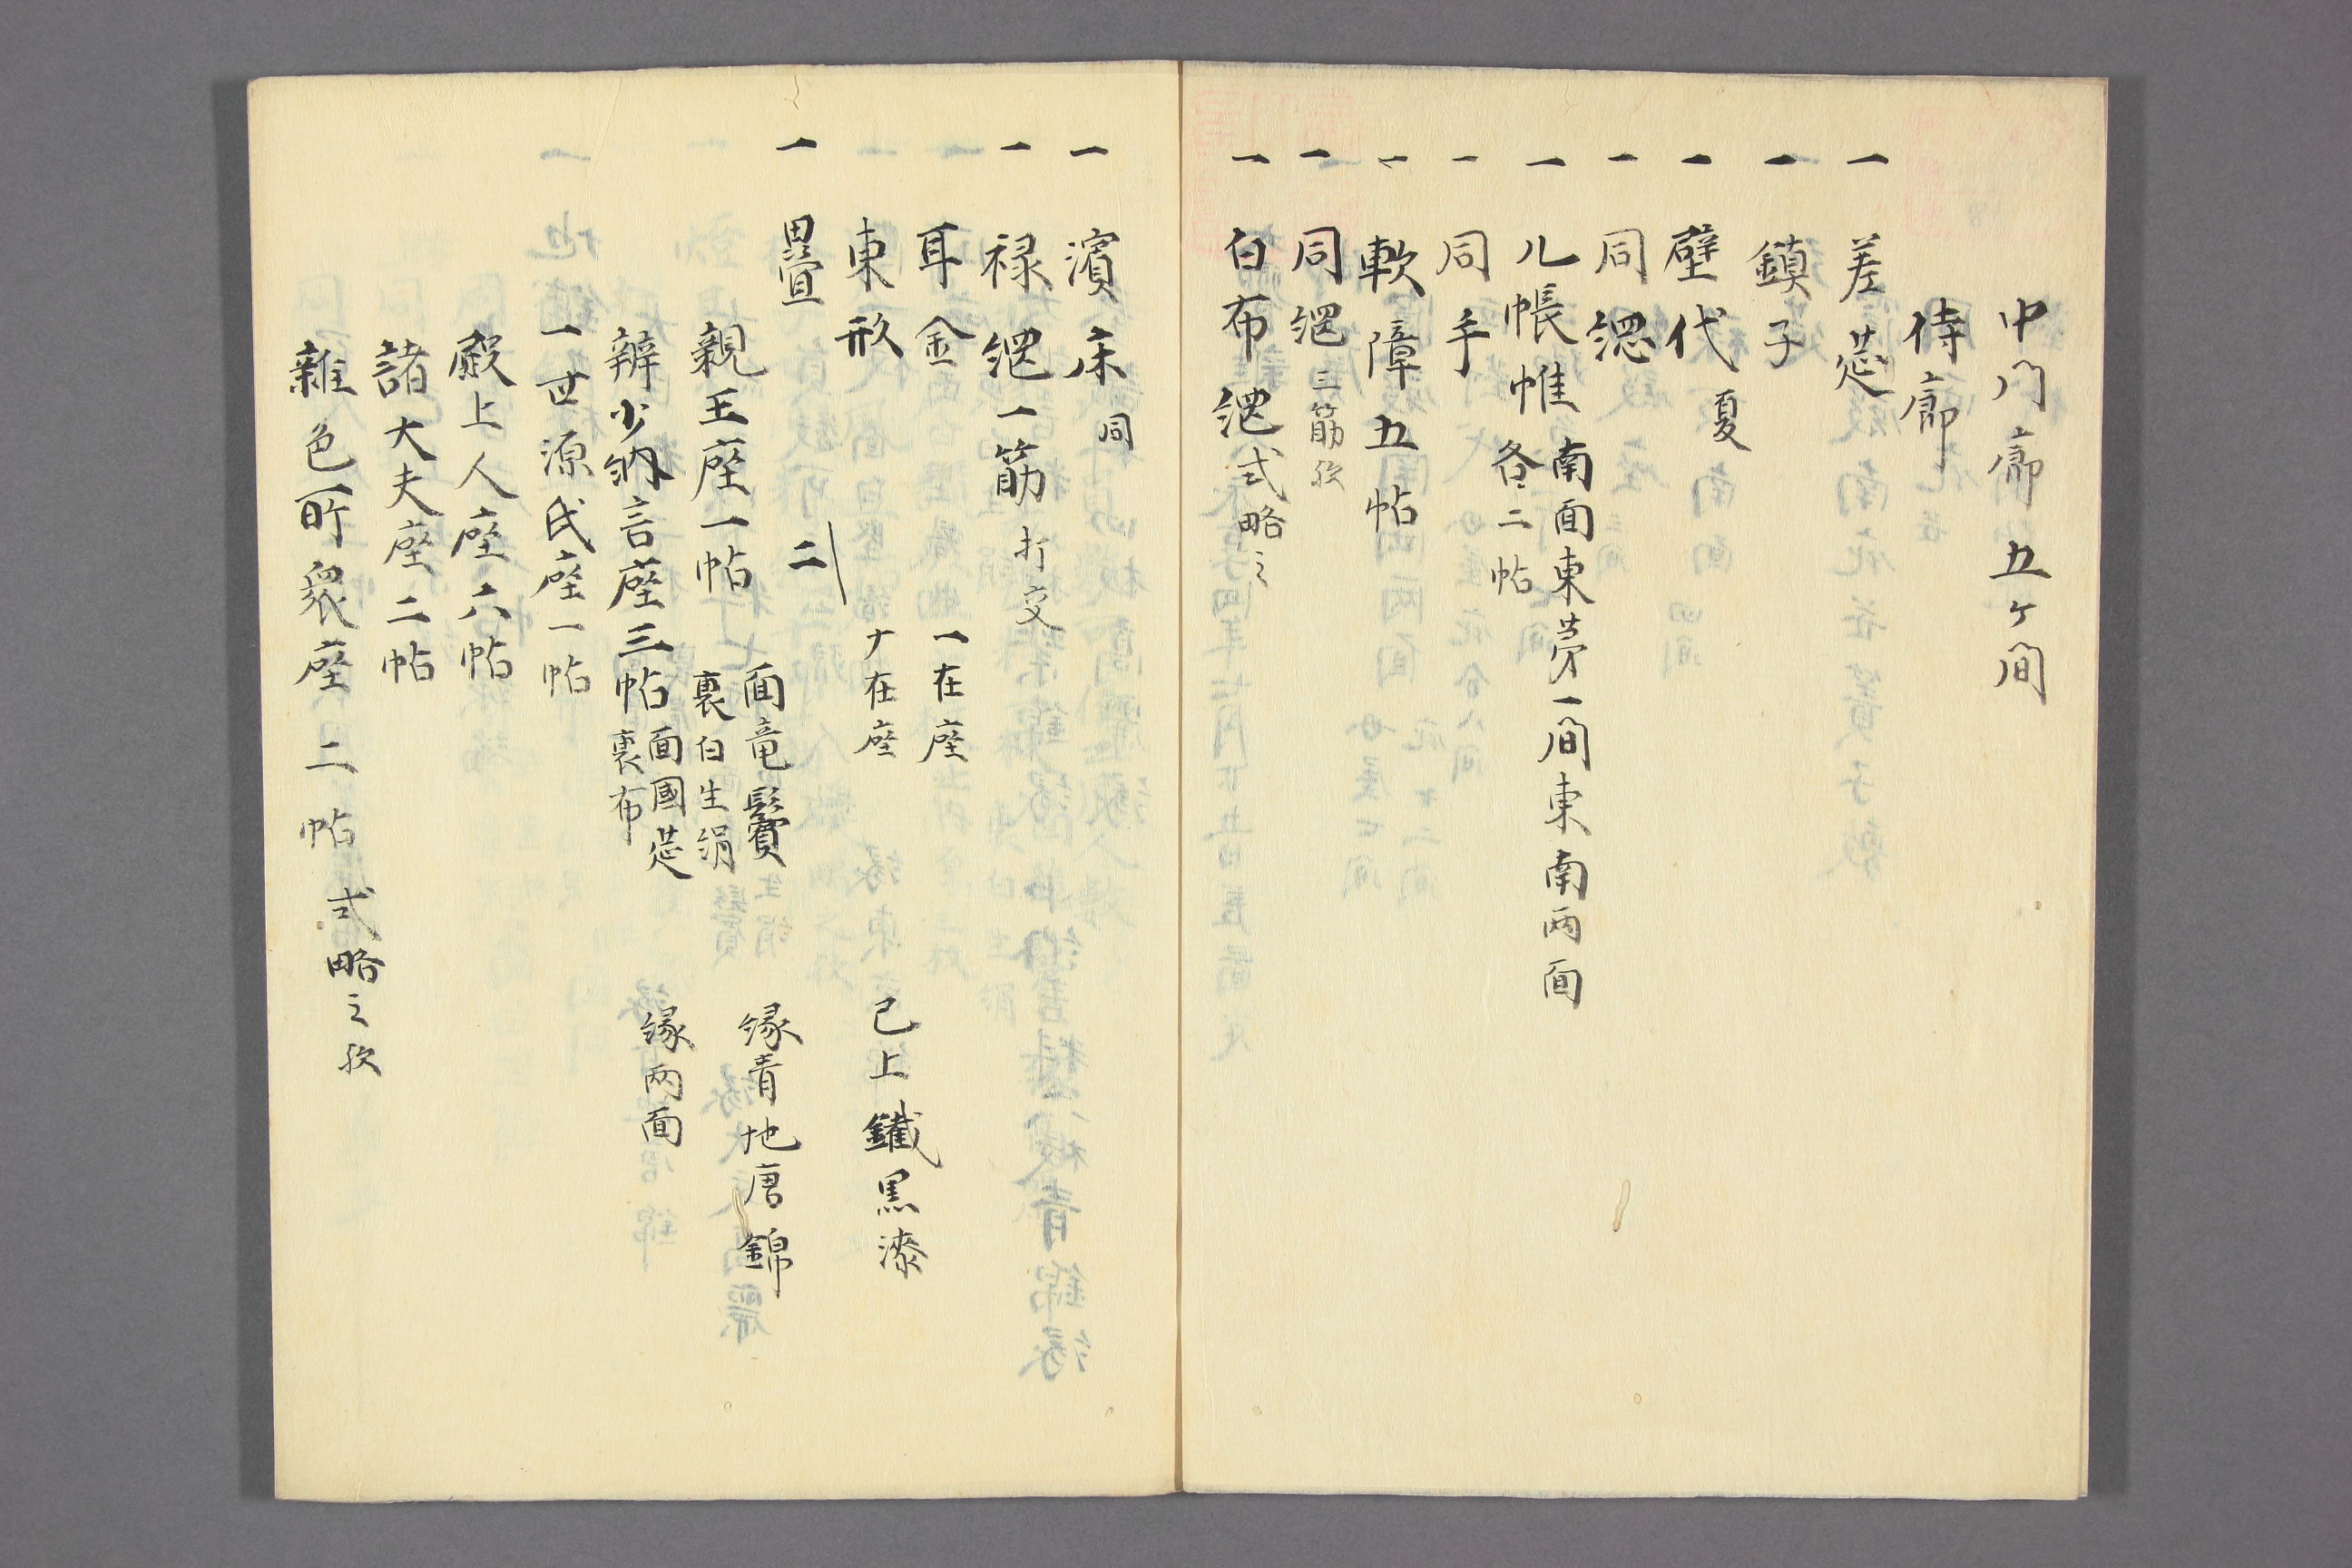 中門廊五ヶ間
侍廊
一 差莚
一 鎮子
一 壁代夏
一 同綱
一 几帳帷 南面東芽一間東南両面
各二帖
一 同手
一 軟障五帖
一 同綱 三筋欤
一 白布綱 式略之
一 濱床同
一 禄綱一筋 打交
耳金 一在座
東形 ナ在座 已上鐵黒漆
一 疊 二
親王座一帖 面竜鬢 縁青地唐錦
裏白生絹
辨少納言座三帖 面國莚 縁両面
裏布
一世源氏座一帖
殿上人座六帖
諸大夫座二帖
雜色所衆座二帖 式略之欤